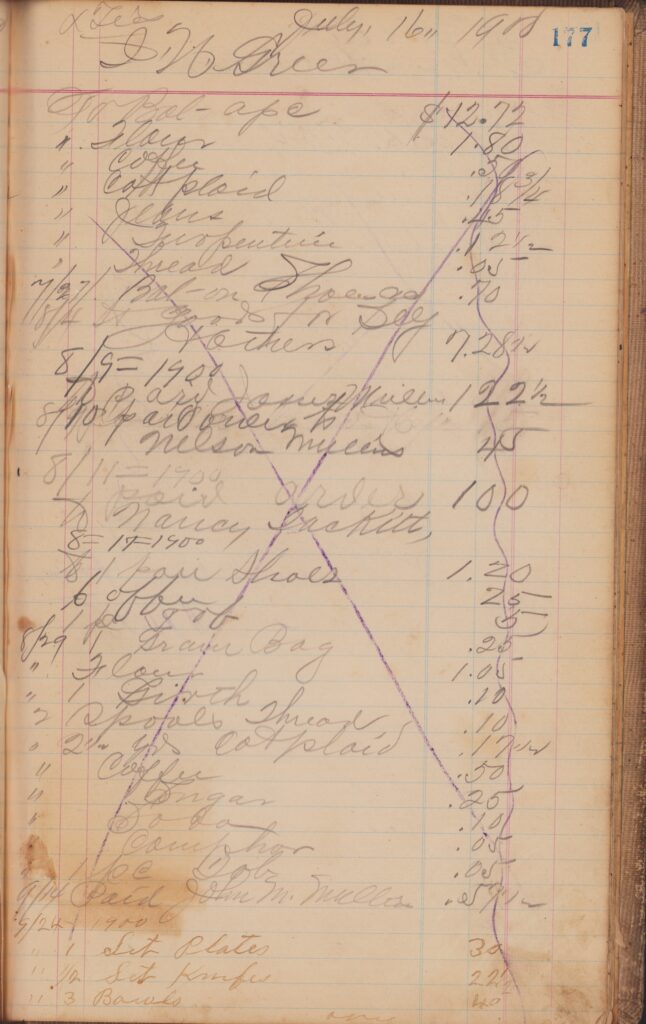 July, 16, 1900 177
To Bal- apc $12.72
" Flour 1.80
" Coffee
" Cot plaid .18 3/4
" Jeans .45
" Turpentine .12 1/2
" Thread .05
7/27 Bal- on Shoes .70
8/4 Goods for Self
& others 7.28 1/2
8/9 = 1900
Paid James Mullens 122 1/2
8/10 paid order to
Nelson Mullens 45
8/11 = 1900
paid order 100
Nancy Hackett,
8 = 17 = 1900
1 pair Shoes 1.20
Coffee 25
8/29 1 Grain Bag .25
" Flour 1.05
" 1 Girth .10
2 Spools Thread .10
" 2 1/2 yds Cot plaid .17 1/2
" Coffee .50
" Sugar .25
" Soda .10
Camphor .05
" 1 pc .05
9/14 Paid John M. Mullens .57 1/2
9/24 1900
" 1 Set Plates 30
" 1/2 Set Knifes 22 1/2
" 3 Bowls 40